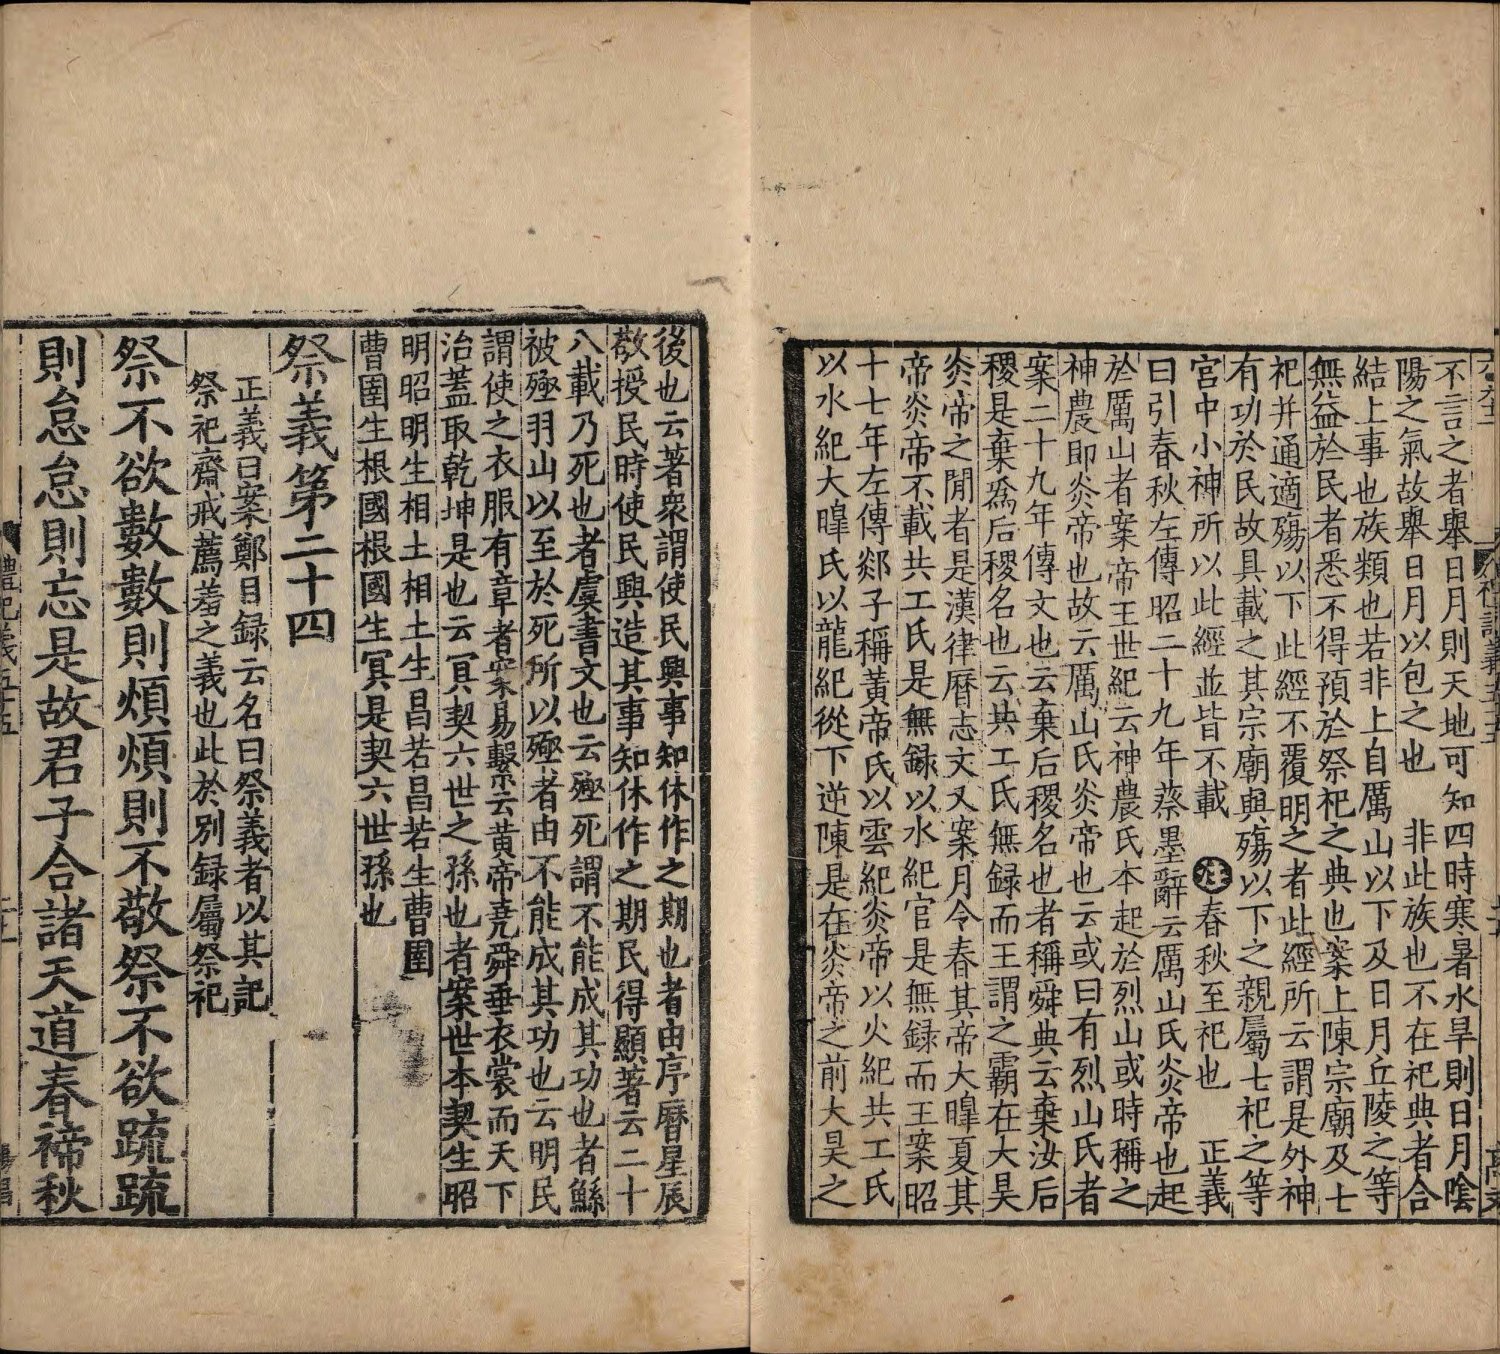 不言之者舉日月則天地可知四時寒暑水旱則日月陰
陽之氣故舉日月以包之也　非此族也不在祀典者合
結上事也族類也若非上自厲山以下及日月丘陵之等
無益於民者悉不得預於祭祀之典也案上陳宗廟及七
祀并通適殤以下此經不覆明之者此經所云謂是外神
有功於民故具載之其宗廟與殤以下之親屬七祀之等
宮中小神所以此經並皆不載　注春秋至祀也　正義
曰引春秋左傳昭二十九年蔡墨辭云厲山氏炎帝也起
於厲山者案帝王世紀云神農氏本起於烈山或時稱之
神農即炎帝也故云厲山氏炎帝也云或曰有烈山氏者
案二十九年傳文也云棄后稷名也者稱舜典云棄汝后
稷是棄爲后稷名也云共工氏無録而王謂之霸在大昊
炎帝之閒者是漢律曆志文又案月令春其帝大暭夏其
帝炎帝不載共工氏是無録以水紀官是無録而王案昭
十七年左傳郯子稱黃帝氏以雲紀炎帝以火紀共工氏
以水紀大暭氏以龍紀從下逆陳是在炎帝之前大昊之
後也云著衆謂使民興事知休作之期也者由序曆星辰
敬授民時使民興造其事知休作之期民得顯著云二十
八載乃死也者虞書文也云殛死謂不能成其功也者鯀
被殛羽山以至於死所以殛者由不能成其功也云明民
謂使之衣服有章者案易繫云黄帝堯舜垂衣裳而天下
治蓋取乾坤是也云冥契六世之孫也者案世本契生昭
明昭明生相土相土生昌若昌若生曹圉
曹圉生根國根國生冥是契六世孫也
祭義第二十四
正義曰案鄭目録云名曰祭義者以其記
祭祀齋戒薦羞之義也此於別録屬祭祀
祭不欲數數則煩煩則不敬祭不欲疏疏
則怠怠則忘是故君子合諸天道春禘秋
禮記義五十五